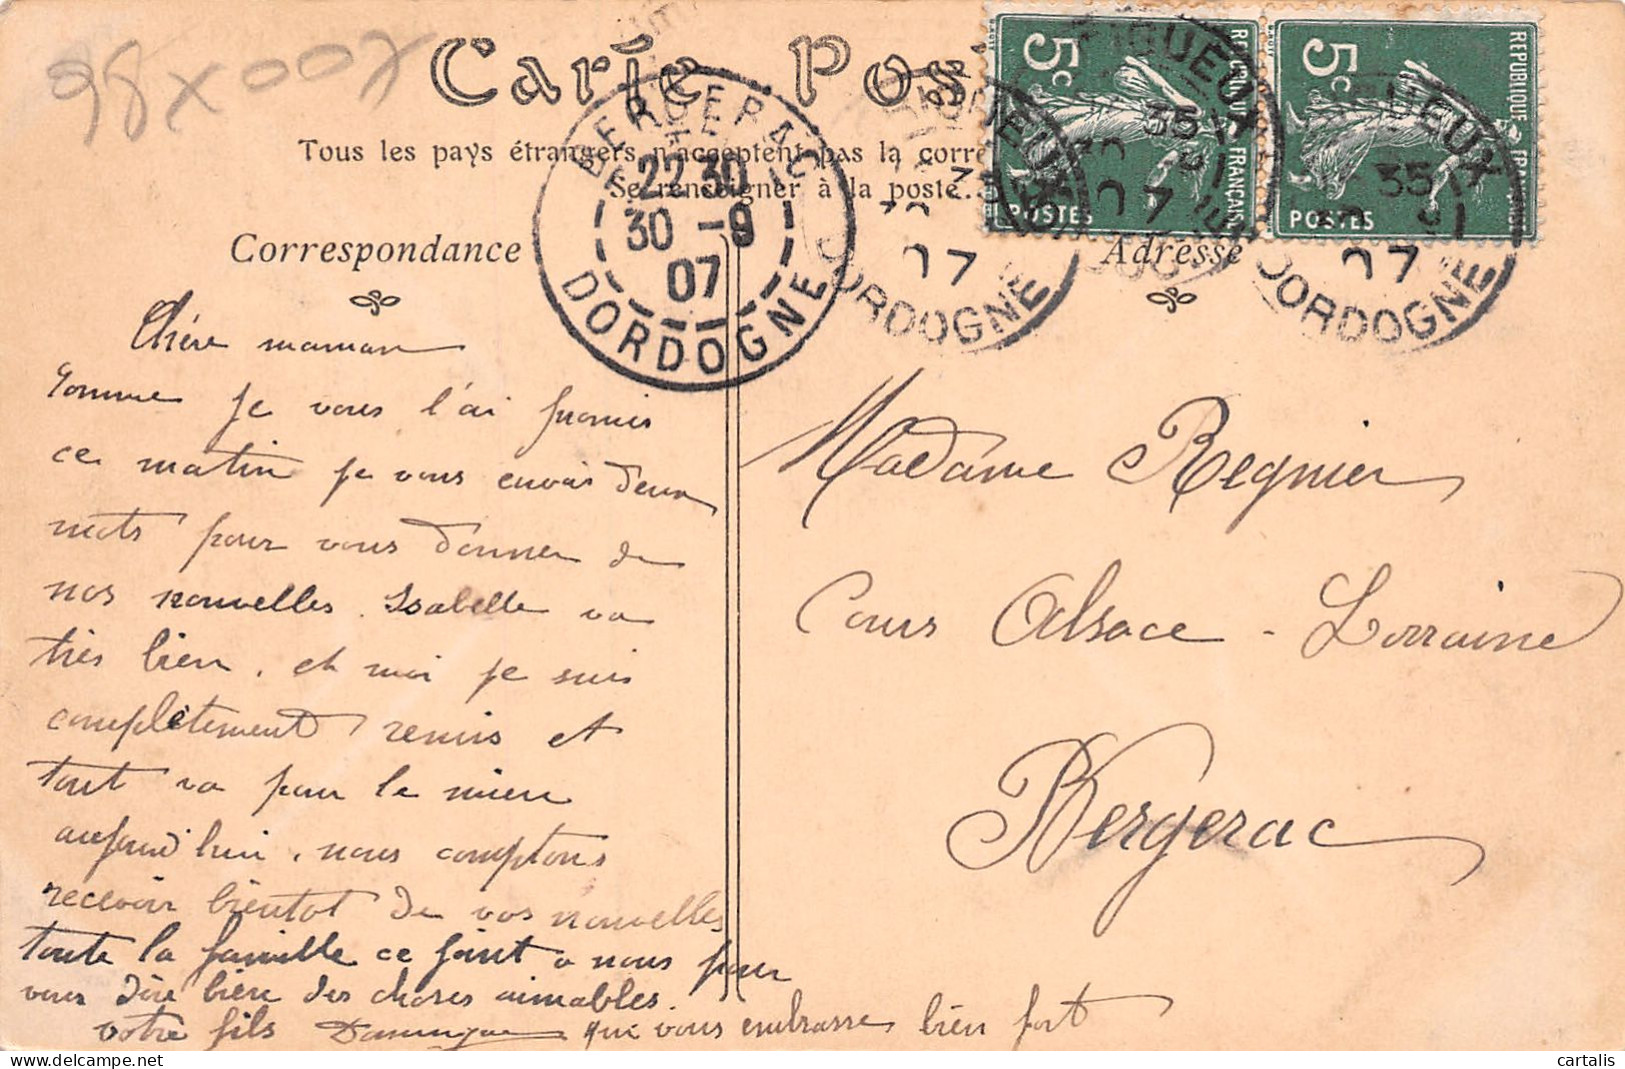 98 x 007
Carte Pos
Tous les pays étrangers n'acceptent pas la corre
Se renseigner à la poste.
BERGERAC
22 30
30 -9
07
DORDOGNE
PERIGUEUX
35
30 9
07
DORDOGNE
5c
REPUBLIQUE FRANÇAISE
POSTES
5c
REPUBLIQUE FRANÇAISE
POSTES
Correspondance
Adresse
Chère maman
Comme je vous l'ai promis
ce matin je vous envoie deux
mots pour vous donner de
nos nouvelles. Isabelle va
très bien, et moi je suis
complètement remis et
tout va pour le mieux
aujourd'hui, nous comptons
recevoir bientot de vos nouvelles
toute la famille ce joint a nous pour
vous dire bien des choses aimables.
votre fils qui vous embrasse bien fort
Madame Regnier
Cours Alsace - Lorraine
Bergerac
cartalis